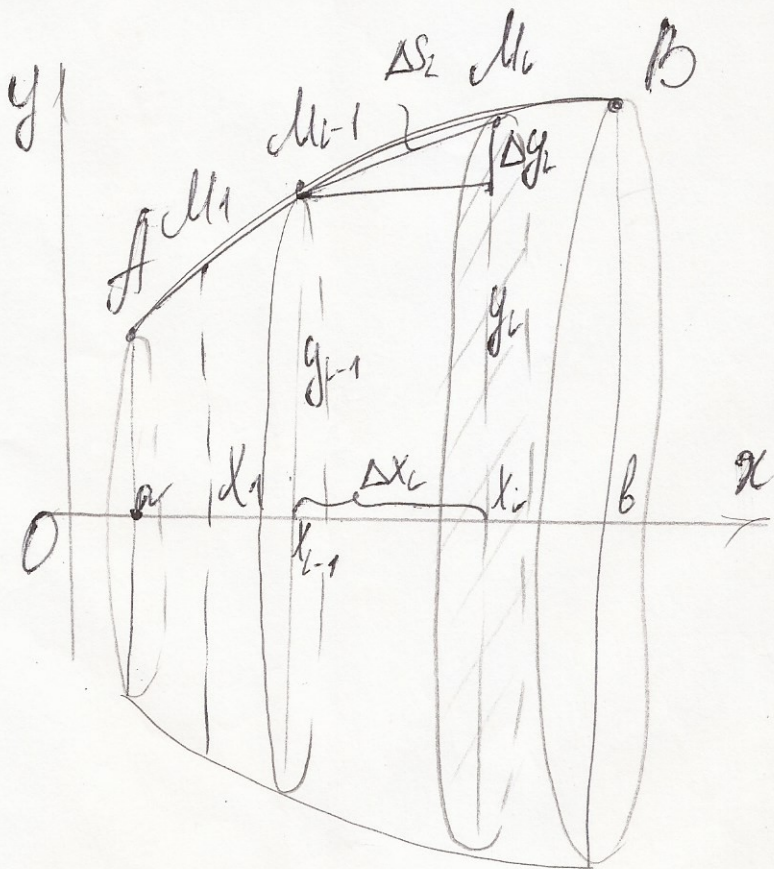 y
ΔSᵢ Mᵢ B
Mᵢ₋₁
Δyᵢ
A M₁
yᵢ
yᵢ₋₁
a x₁ Δxᵢ xᵢ b x
O xᵢ₋₁